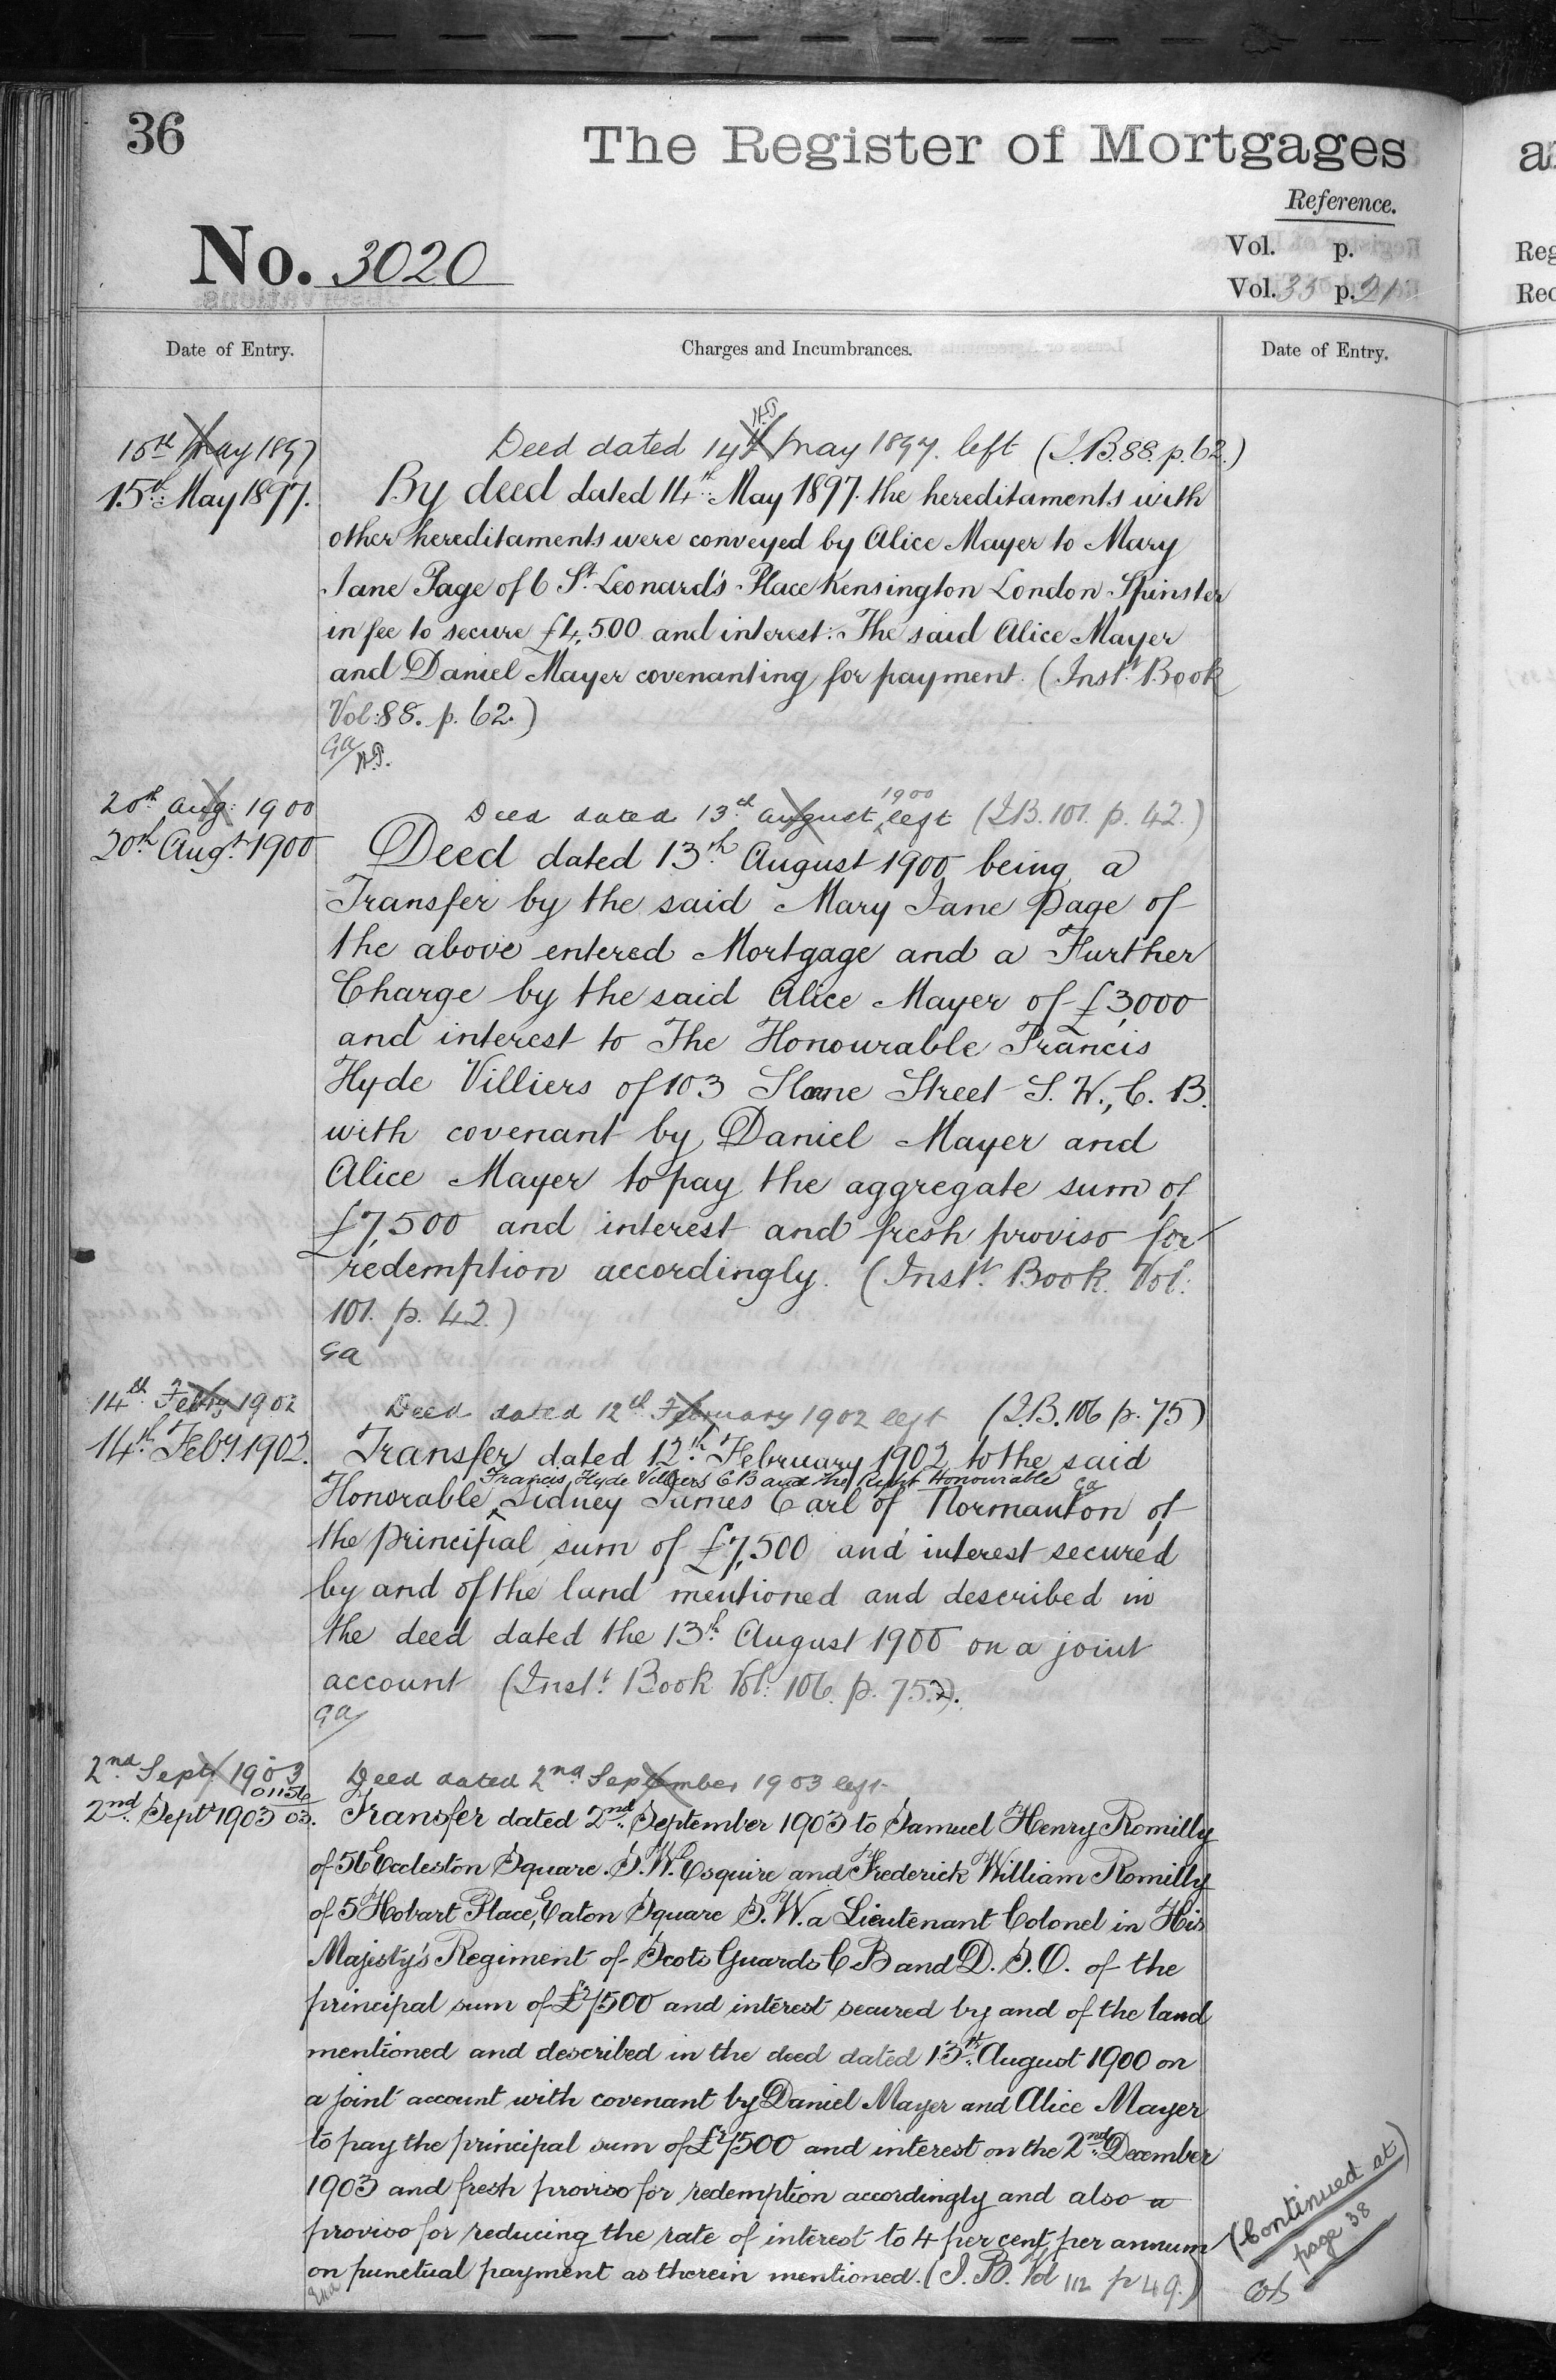 36
The Register of Mortgages
Reference.
No. 3020
Vol. p.
Vol. 35 p. 21
Date of Entry.
Charges and Incumbrances.
Date of Entry.
15th May 1897
Deed dated 14th May 1897. left (I.B. 88. p. 62.)
15th May 1897.
By deed dated 14th May 1897. the hereditaments with
other hereditaments were conveyed by Alice Mayer to Mary
Jane Page of 6 St. Leonard's Place Kensington London Spinster
in fee to secure £4,500 and interest: The said Alice Mayer
and Daniel Mayer covenanting for payment. (Inst. Book
Vol: 88. p. 62.)
GA
H.P.
20th Aug: 1900
Deed dated 13th August 1900 left (I.B. 101. p. 42.)
20th Augt. 1900
Deed dated 13th August 1900 being a
Transfer by the said Mary Jane Page of
the above entered Mortgage and a Further
Charge by the said Alice Mayer of £3,000
and interest to The Honourable Francis
Hyde Villiers of 103 Sloane Street S. W., C. B.
with covenant by Daniel Mayer and
Alice Mayer to pay the aggregate sum of
£7,500 and interest and fresh proviso for
redemption accordingly. (Inst. Book. Vol:
101. p. 42.)
GA
14th Febry 1902
Deed dated 12th February 1902 left (I.B. 106 p. 75)
14th Feby 1902.
Transfer dated 12th February 1902 to the said
Francis Hyde Villiers CB and the Right Honourable GA
Honorable Sidney James Earl of Normanton of
the principal sum of £7,500 and interest secured
by and of the land mentioned and described in
the deed dated the 13th August 1900 on a joint
account (Inst. Book Vol: 106. p. 75.).
GA
2nd Sept 1903
Deed dated 2nd September 1903 left
01156
2nd Sept 1903 03.
Transfer dated 2nd September 1903 to Samuel Henry Romilly
of 56 Eccleston Square. S.W. Esquire and Frederick William Romilly
of 5 Hobart Place, Eaton Square S.W. a Lieutenant Colonel in His
Majesty's Regiment of Scots Guards C B and D. S. O. of the
principal sum of £7,500 and interest secured by and of the land
mentioned and described in the deed dated 13th August 1900 on
a joint account with covenant by Daniel Mayer and Alice Mayer
to pay the principal sum of £7,500 and interest on the 2nd December
1903 and fresh proviso for redemption accordingly and also a
proviso for reducing the rate of interest to 4 per cent per annum
on punctual payment as therein mentioned. (I. B. Vol 112 p 49.)
(Continued at
page 38)
a
Reg
Rec